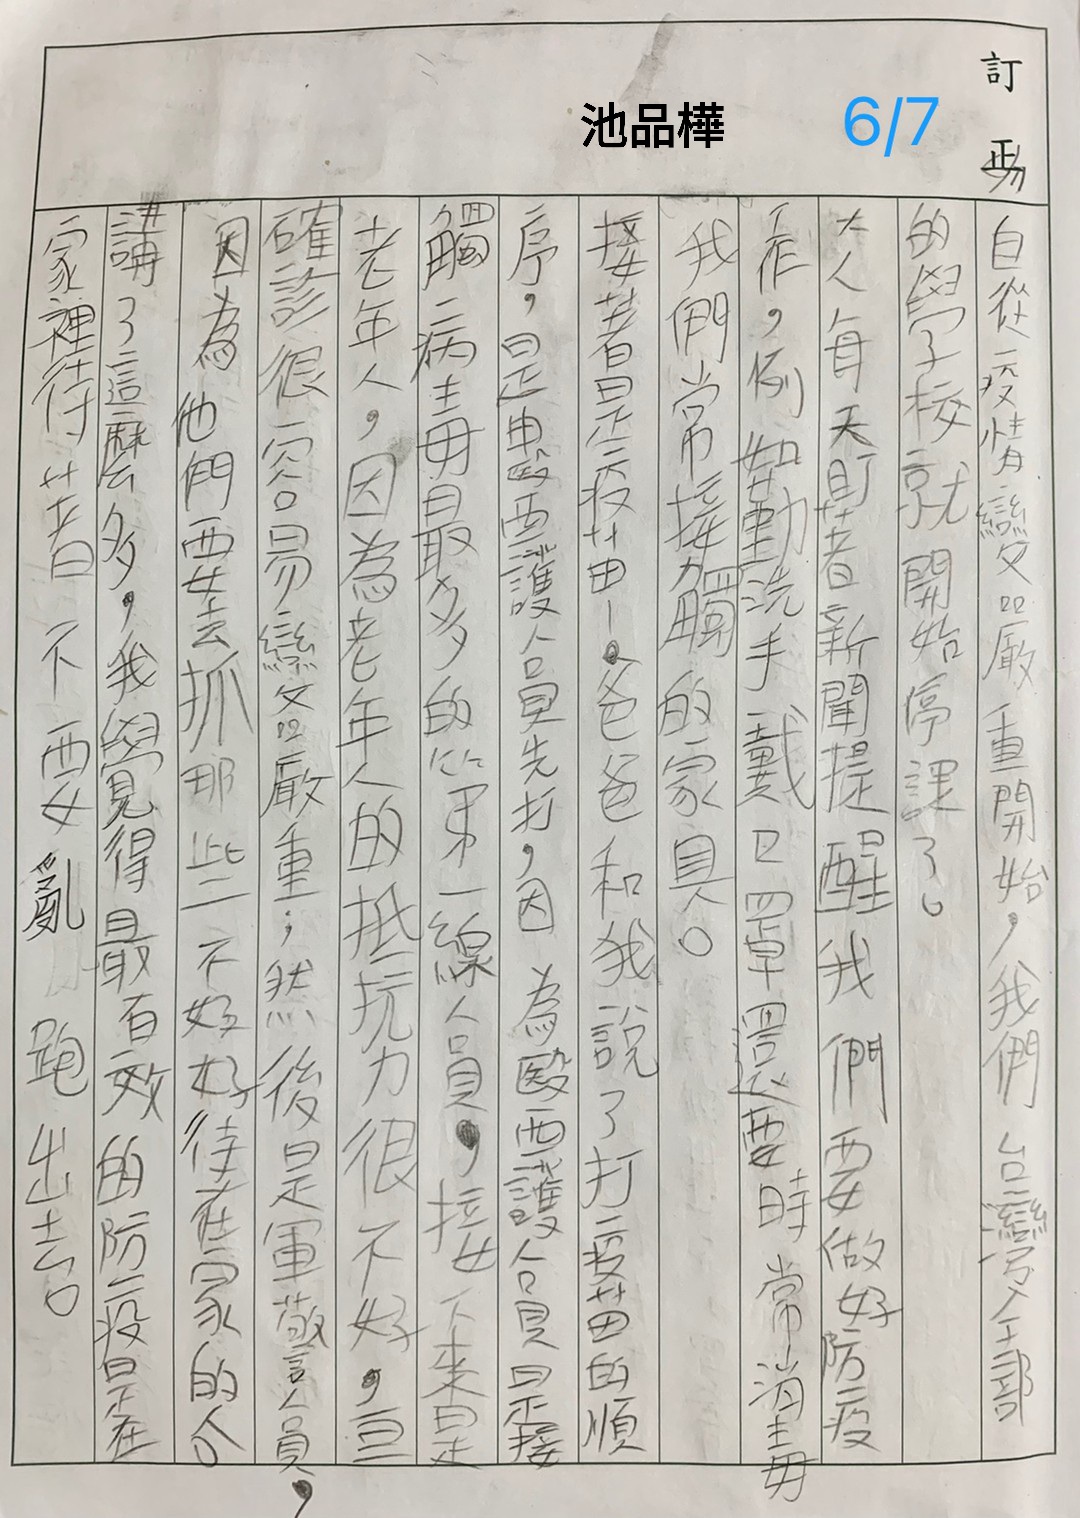 訂正
池品樺
6/7
自從疫情變嚴重開始,我們台灣全部
的學校就開始停課了。
大人每天盯著新聞提醒我們要做好防疫
作,例如勤洗手戴口罩還要時常消毒
我們常接觸的家具。
接著是疫苗,爸爸和我說了打疫苗的順
序,是由醫護人員先打,因為醫護人員是接
觸病毒最多的第一線人員,接下來是
老年人,因為老年人的抵抗力很不好,一旦
確診很容易變嚴重;然後是軍警人員,
因為他們要去抓那些不好好待在家的人
講了這麼多,我覺得最有效的防疫是在
家裡待著不要亂跑出去。